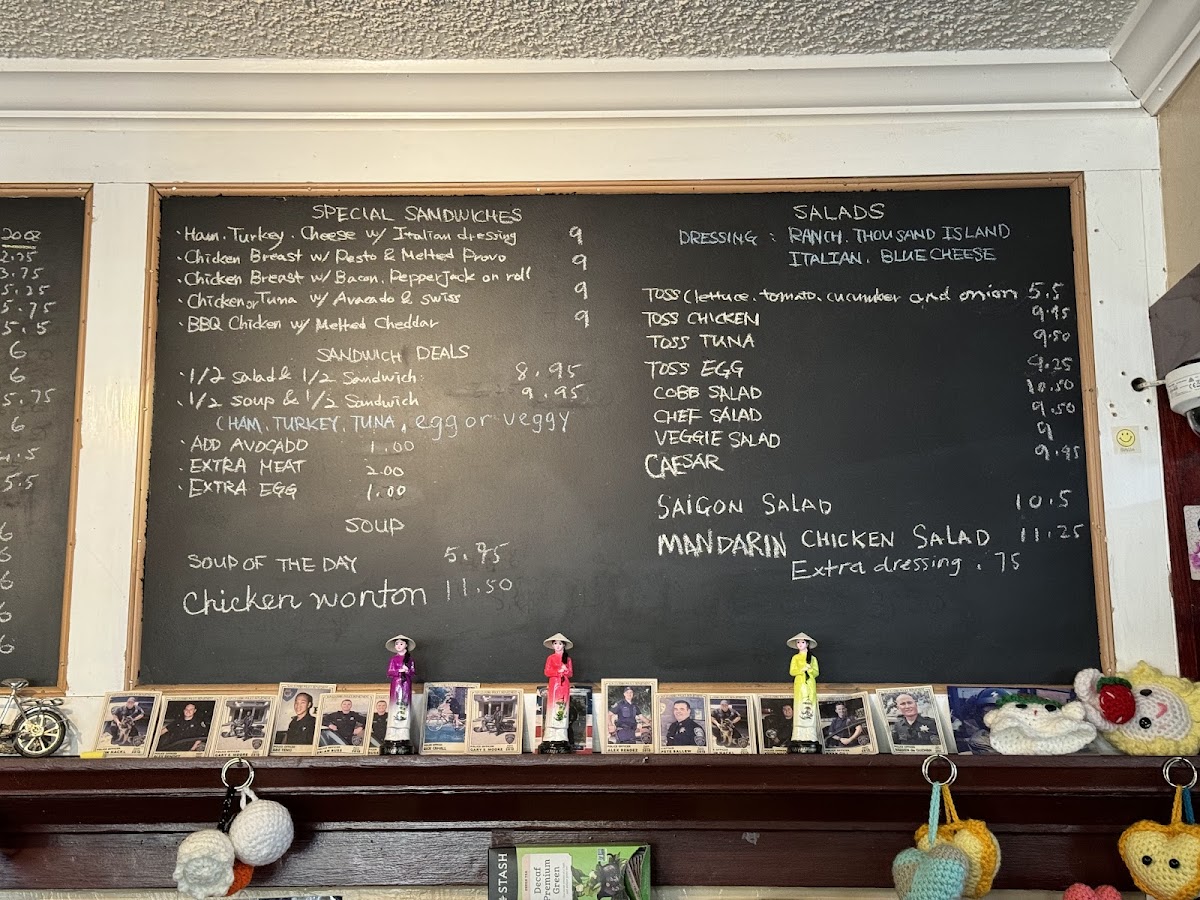 20oz
2.25
3.75
5.25
5.75
5.5
6
6
5.75
6
4.5
5.5
6
6
6
6
6
SPECIAL SANDWICHES
·Ham. Turkey. Cheese w/ Italian dressing 9
·Chicken Breast w/ Pesto & Melted Provo 9
·Chicken Breast w/ Bacon, Pepperjack on roll
·Chicken or Tuna w/ Avocado & swiss 9
·BBQ Chicken w/ Melted Cheddar 9
SANDWICH DEALS
·1/2 salad & 1/2 Sandwich 8.95
·1/2 soup & 1/2 Sandwich 9.95
(HAM, TURKEY, TUNA, egg or veggy
·ADD AVOCADO 1.00
·EXTRA MEAT 2.00
·EXTRA EGG 1.00
SOUP
SOUP OF THE DAY 5.95
Chicken wonton 11.50
SALADS
DRESSING : RANCH. THOUSAND ISLAND
ITALIAN. BLUE CHEESE
TOSS (lettuce, tomato, cucumber and onion 5.5
TOSS CHICKEN 9.95
TOSS TUNA 9.50
TOSS EGG 9.25
COBB SALAD 10.50
CHEF SALAD 9.50
VEGGIE SALAD 9
CAESAR 9.95
SAIGON SALAD 10.5
MANDARIN CHICKEN SALAD 11.25
Extra dressing .75
STASH
Decaf
Premium
Green